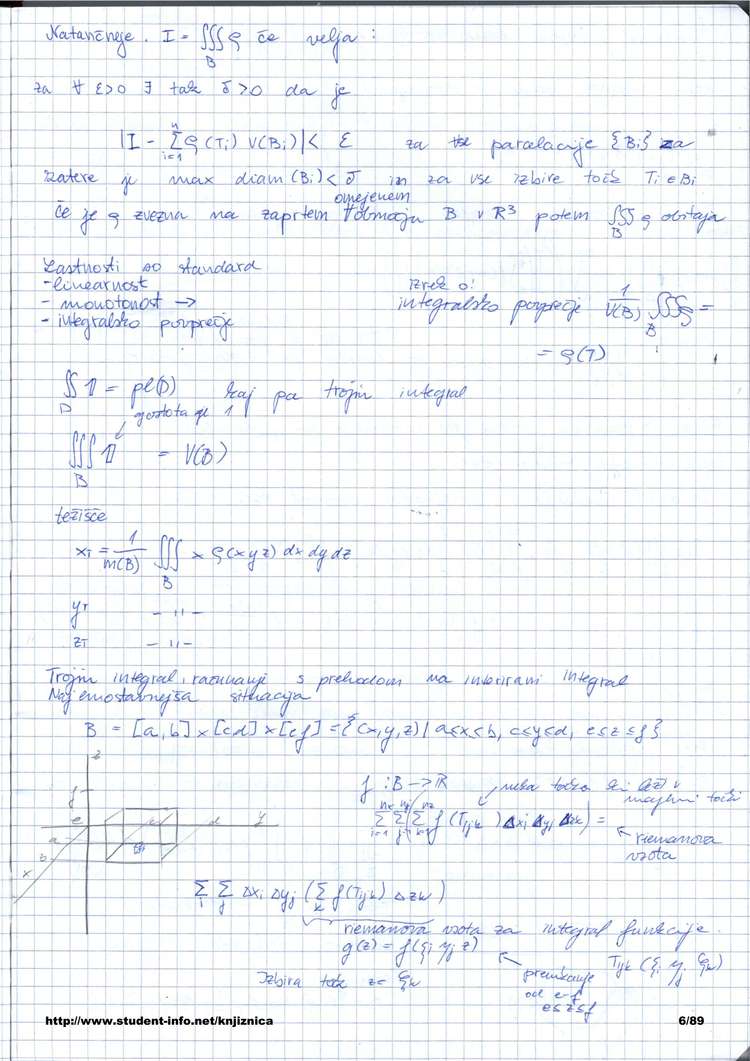 Natančneje. I = ∭_B ρ če velja :
za ∀ ε>0 ∃ tak δ>0 da je
|I - Σ_{i=1}^{n} ρ(Ti) V(Bi)| < ε za vse parcelacije {Bi} za
katere je max diam (Bi) < δ in za vse izbire točk Ti ∈ Bi
omejenem
če je ρ zvezna na zaprtem V območju B v R³ potem ∭_B ρ obstaja
Lastnosti so standard
- linearnost
- monotonost →
- integralsko povprečje
izrek o:
integralsko povprečje 1/V(B) ∭_B ρ =
= ρ(T)
∬_D 1 = pl(D) kaj pa trojni integral
gostota je 1
∭_B 1 = V(B)
težišče
xT = 1/m(B) ∭_B x ρ(x y z) dx dy dz
yT - 11 -
zT - 11 -
Trojni integral, računanje s prehodom na integral
Najenostavnejša situacija
B = [a,b] × [c d] × [e f] = {(x,y,z) | a≤x≤b, c≤y≤d, e≤z≤f}
z
f
e
a
b
c
d
y
x
f : B → R
neka točka ki leži v
Σ_{i=1}^{nx} Σ_{j=1}^{ny} Σ_{k=1}^{nz} f (Tijk) Δxi Δyj Δzk) =
riemanova
vsota
Σ_i Σ_j Δxi Δyj (Σ_k f(Tijk) Δzk)
riemanova vsota za integral funkcije.
g(z) = f(ξi ηj z)
Tijk (ξi ηj ζk)
Izbira točk z = ζk
od e-f
e≤z≤f
http://www.student-info.net/knjiznica
6/89